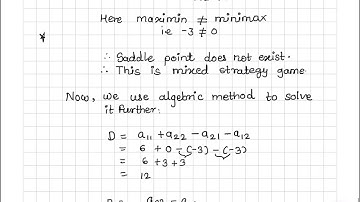 Here maximin ≠ minimax
ie -3 ≠ 0
∴ Saddle point does not exist.
∴ This is mixed strategy game
Now, we use algebric method to solve
it further:
D = a₁₁ + a₂₂ - a₂₁ - a₁₂
= 6 + 0 - (-3) - (-3)
= 6 + 3 + 3
= 12